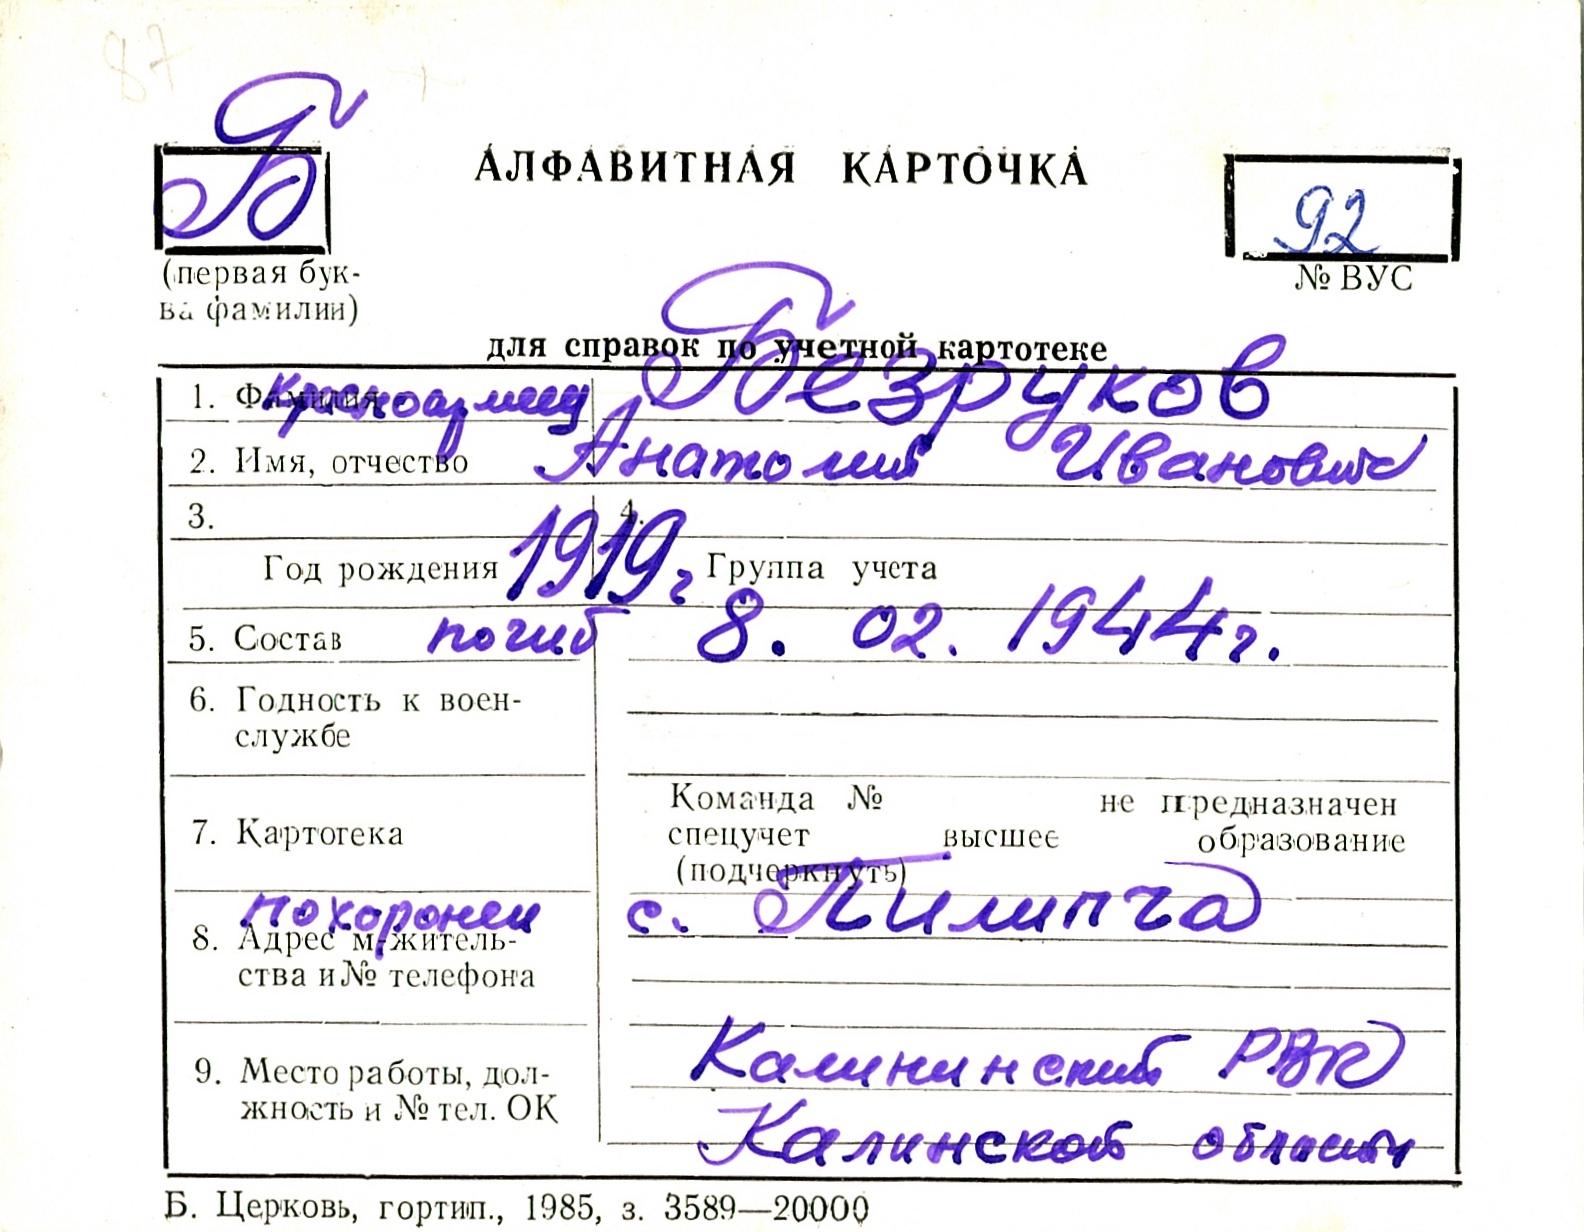 87
Б
АЛФАВИТНАЯ КАРТОЧКА
92
(первая бук-
ва фамилии)
№ ВУС
для справок по учетной картотеке
1. Фамилия красноармеец Безруков
2. Имя, отчество Анатолий Иванович
3. 4.
Год рождения 1919 г Группа учета
5. Состав погиб 8. 02. 1944 г.
6. Годность к воен-
службе
Команда № не предназначен
7. Картотека спецучет высшее образование
(подчеркнуть)
похоронен с. Пилипча
8. Адрес м-житель-
ства и № телефона
Калининский РВК
9. Место работы, дол-
жность и № тел. ОК
Калинской области
Б. Церковь, гортип., 1985, з. 3589—20000